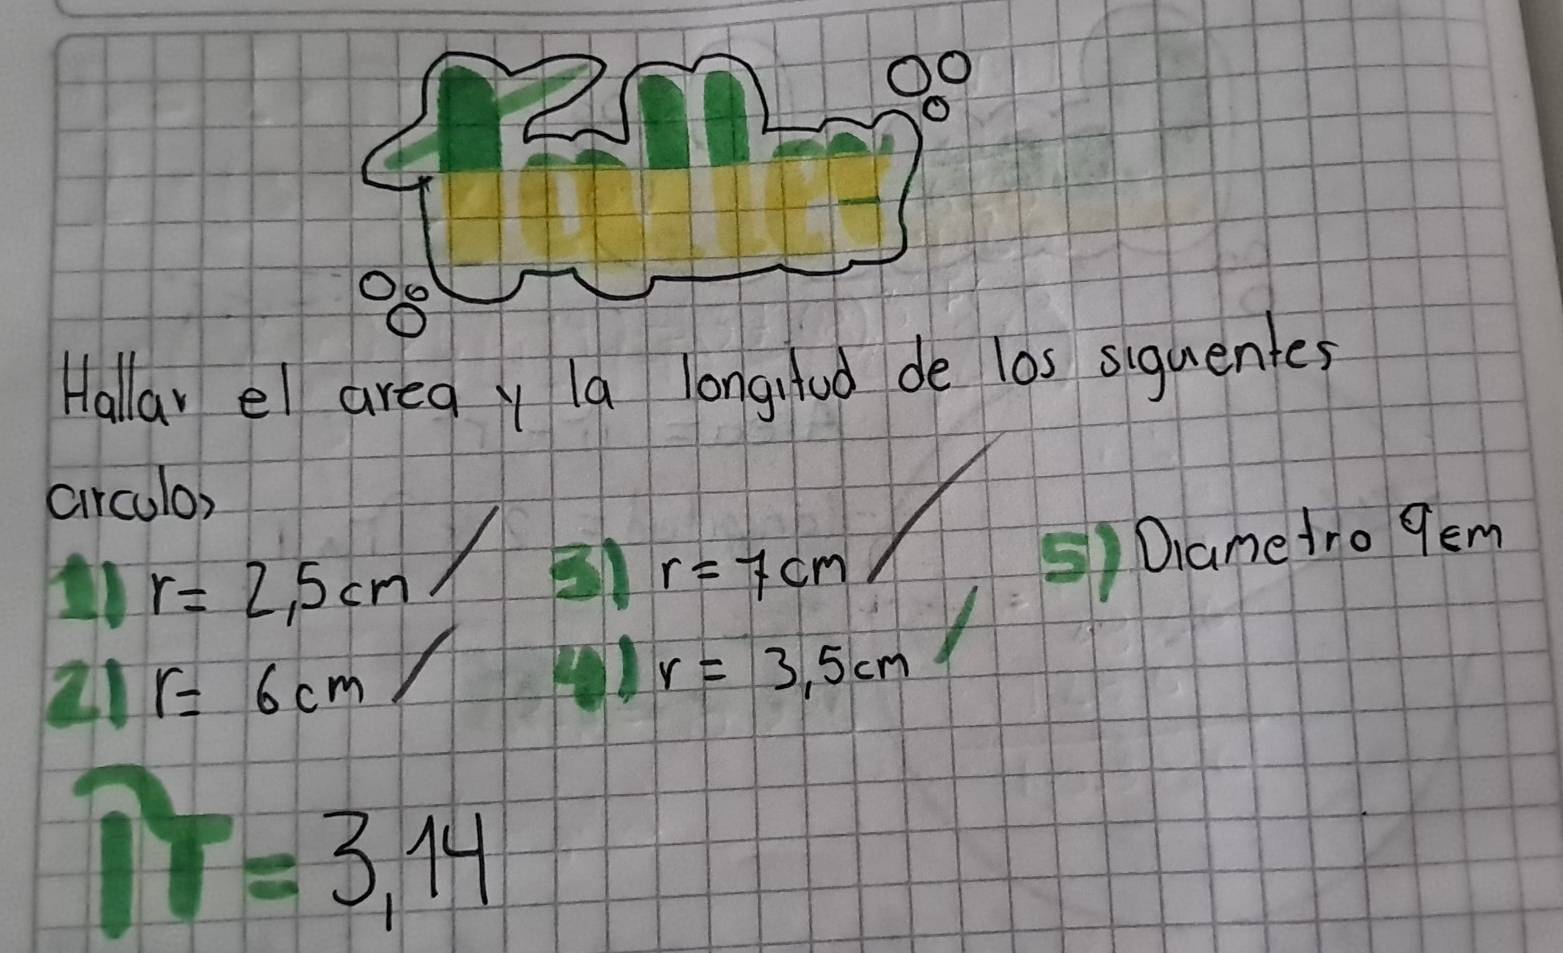 Taller
Hallar el area y la longitud de los siguentes
circulos
1) r= 2,5cm
3) r= 7cm
5) Diametro 9cm
2) r= 6cm
4) r= 3,5cm
π = 3,14